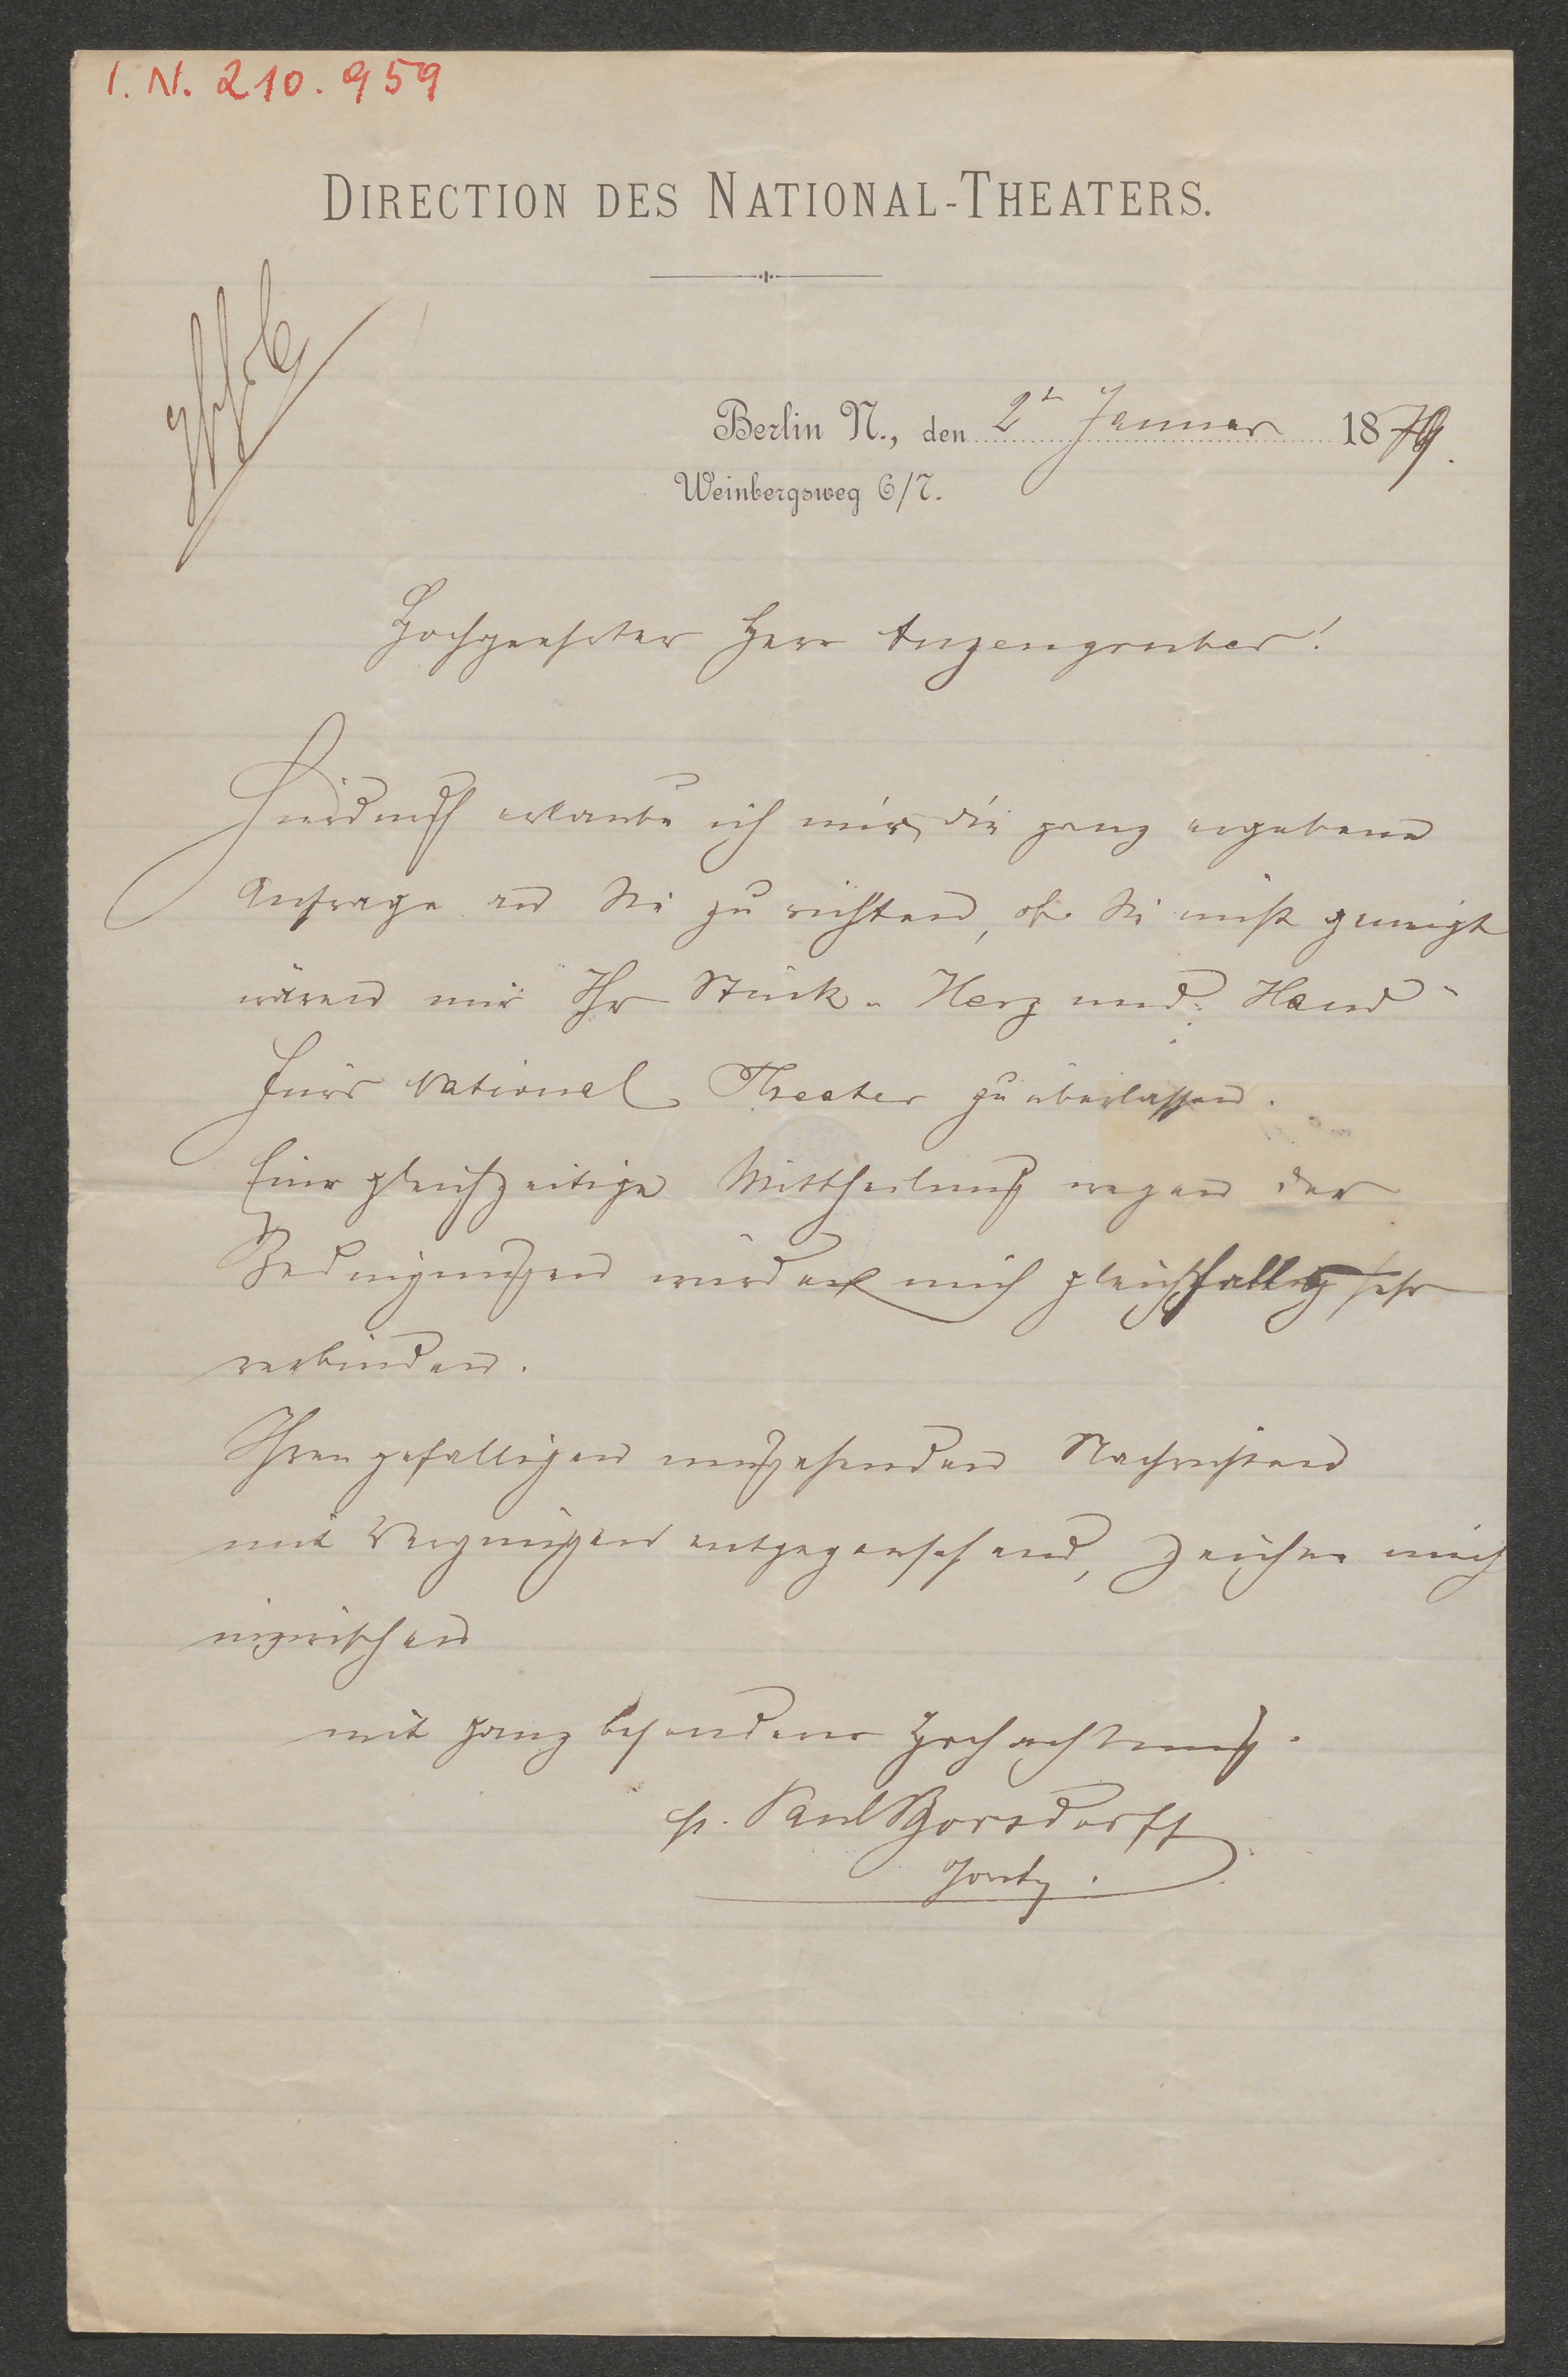 I. N. 210.959
DIRECTION DES NATIONAL-THEATERS.
Berlin N., den 2t Januar 1879.
Weinbergsweg 6/7.
Hochgeehrter Herr Anzengruber!
Hierdurch erlaube ich mir, die ganz ergebene
Anfrage an Sie zu richten, ob Sie nicht geneigt
wären mir Ihr Stück „Herz und Hand"
fürs National Theater zu überlassen.
Eine gleichzeitige Mittheilung wegen der
Bedingungen würden mich gleichfalls sehr
verbinden.
Ihren gefälligen umgehenden Nachrichten
mit Vergnügen entgegensehend, zeichne mich
inzwischen
mit ganz besonderer Hochachtung.
p. Paul Borsdorff